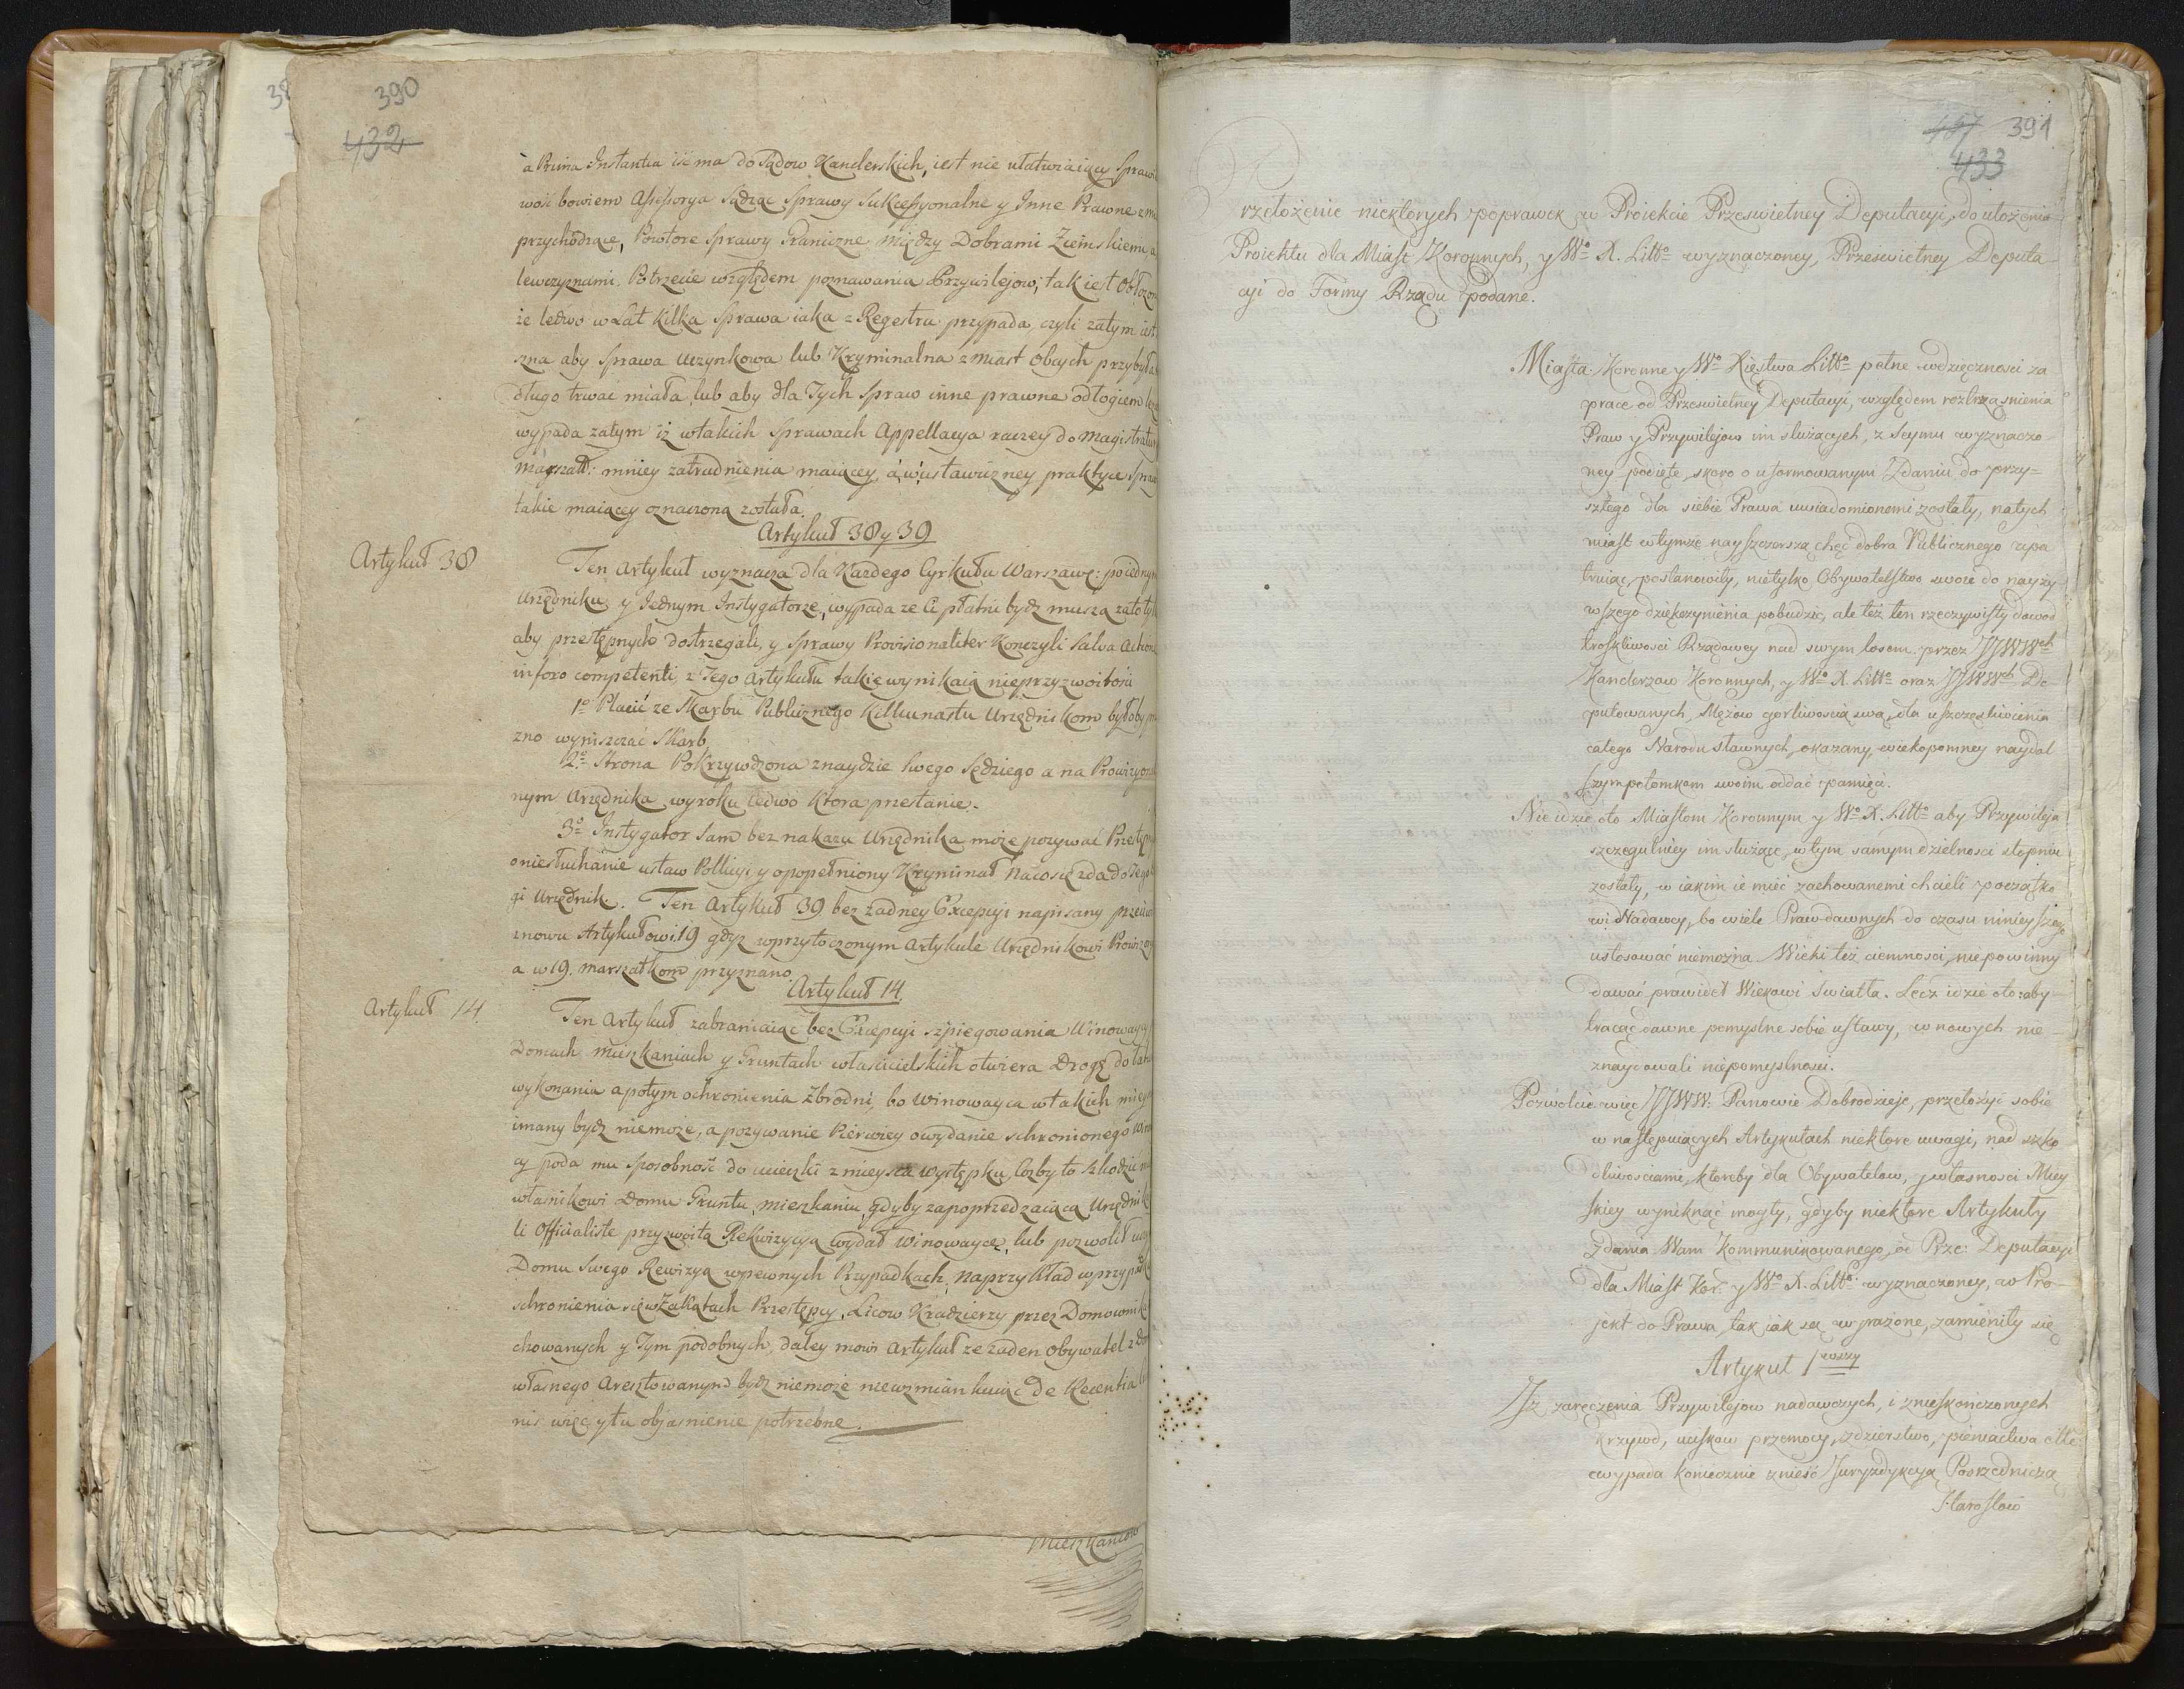 390
432
a Prima Instantia iść ma do Sądow Kanclerskich, iest nie ułatwiaiący
wość bowiem Assessorya Sądząc Sprawy Sukcessyonalne y Inne Prawne
przychodzące, Powtore Sprawy Graniczne między Dobrami Ziemskiemi a
lewczyznami. Potrzecie względem poznawania Przywilejow, tak iest
że ledwo w Lat kilka Sprawa iaka z Regestru przypada, czyli zatym
szna aby Sprawa uczynkowa lub Kryminalna z miast Obcych
długo trwać miała lub aby dla Tych Spraw inne prawne odłogiem
wypada zatym iż w takich Sprawach Appellacya raczey do
marszałk: mniey zatrudnienia maiącey, á w ustawiczney praktyce
takie maiącey oznaczona została.
Artykuł 38 y 39
Artykuł 38
Ten Artykuł wyznacza dla Każdego Cyrkułu Warszaws:
Urzędniku y Jednym Instygatorze, wypada ze Ci płatni bydz muszą
aby przestępnych dostrzegali, y Sprawy Provisionaliter Kończyli Salva
in foro competenti, z Tego Artykułu takie wynikaią nieprzyzwoitości
1º Płacić ze Skarbu Publicznego Kilkunastu Urzędnikom byłoby
zno wyniszczać Skarb
2º Strona Pokrzywdzona znaydzie swego Sędziego a na
nym Urzędnika wyroku ledwo Ktora przestanie.
3º Instygator Sam bez nakazu Urzędnika może pozywać
o niesłuchanie ustaw Pollicyi y o popełniony Kryminał
gi Urzędnik. Ten Artykuł 39 bez żadney Excepcyi napisany
znowu Artykułowi 19 gdyz w przytoczonym Artykule Urzędnikowi
a w 19. marszałkom przyznano
Artykuł 14.
Artykuł 14.
Ten Artykuł zabraniaiąc bez Excepcyi szpiegowania
Domach mieszkaniach y Gruntach właścicielskich otwiera Drogę
wykonania a potym ochronienia Zbrodni, bo winowayca w takich
imany bydz niemoże, a pozywanie Pierwiey o wydanie schronionego
cy poda mu sposobność do ucieczki z mieysca występku, Cożby to Szkodzić
własnikowi Domu Gruntu, mieszkaniu, gdyby za poprzedzaiącą
li Officialiste przyzwoitą Rekwizycyą wydał winowaycę, lub pozwolił
Domu Swego Rewizyą w pewnych Przypadkach, naprzykład w
schronienia się w Zakątach Przestępcy, Licow Kradzierzy przez
chowanych y Tym podobnych, daley mowi Artykuł ze żaden Obywatel z
własnego Aresztowanym bydz niemoże niewzmiankuiąc de Recentia
nis więc y tu objasnienie potrzebne.
Mieszkancow
391
433
rzełożenie niektorych poprawek w Proiekcie Prześwietney Deputacyi, do ułożenia
Proiektu dla Miast Koronnych, y Wº X. Littº wyznaczoney, Prześwietney Deputa-
cyi do Formy Rządu podane.
Miasta Koronne y Wº Xięstwa Littº pełne wdzięczności za
prace od Prześwietney Deputacyi, względem roztrząśnienia
Praw y Przywilejow im służących, z Seymu wyznaczo-
ney podięte, skoro o uformowanym Zdaniu do przy-
szłego dla siebie Prawa uwiadomionemi zostały, natych
miast w tymże nayszczerszą chęć dobra Publicznego upa
truiąc, postanowiły, nietylko Obywatelstwo swoie do nayży
wszego dziękczynienia pobudzić, ale też ten rzeczywisty dowod
troskliwości Rządowey nad swym losem przez JJWWch
Kanclerzow Koronnych, y Wº X. Littº oraz JJWWch De
putowanych Mężow gorliwością swą, dla uszczęśliwienia
całego Narodu sławnych, okazany, wiekopomney naydal
szym potomkom swoim oddać pamięci.
Nie idzie oto Miastom Koronnym y Wº X. Littº aby Przywileja
szczegulniey im służące, w tym samym dzielności stopniu
zostały, w iakim ie mieć zachowanemi chcieli początko
wi Nadawcy, bo wiele Praw dawnych do czasu ninieyszego
ustosować niemożna. Wieki też ciemności, niepowinny
dawać prawideł Wiekowi Swiatła. Lecz idzie oto: aby
tracąc dawne pomyślne sobie ustawy, w nowych nie-
znaydowali niepomyślności.
Pozwolcie więc JJWW: Panowie Dobrodzieje, przełożyć sobie
w następuiących Artykułach niektore uwagi, nad szko
dliwościami, ktoreby dla Obywatelow, y własności Miey
skiey wyniknąć mogły, gdyby niektore Artykuły
Zdania Wam kommunikowanego, od Prze: Deputacyi
dla Miast Kor: y Wº X. Littº wyznaczoney, w Pro-
jekt do Prawa, tak iak są wyrażone, zamieniły się
Artykuł 1wszy
Iż zaręczenia Przywilejow nadawczych, i znieskończonych
krzywd, ucisków przemocy, zdzierstwa, pieniactwa
wypada koniecznie znieść Juryzdykcyą Pośredniczą
Starostow